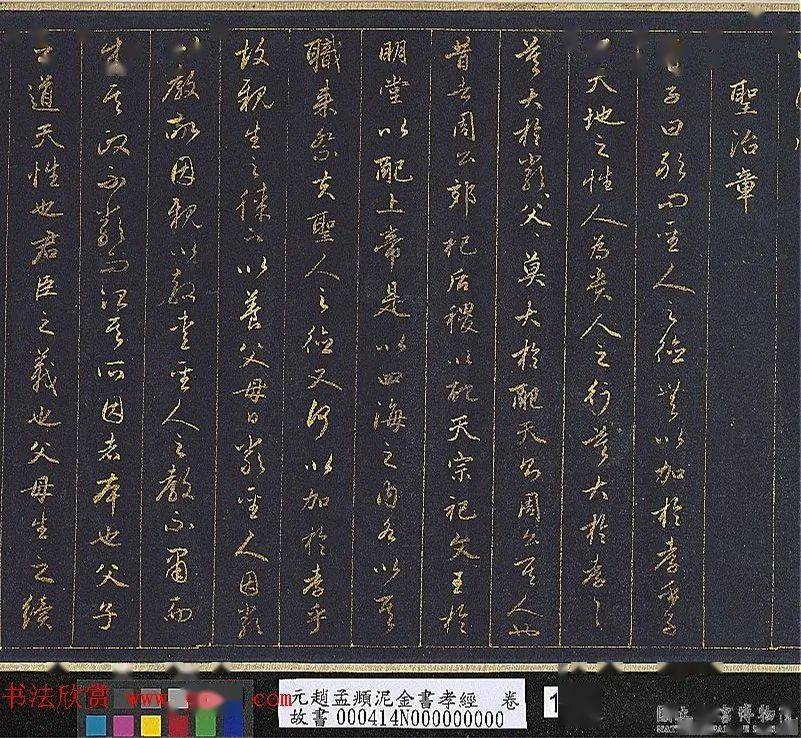 聖治章
子曰敢問聖人之德無以加於孝乎子
曰天地之性人為貴人之行莫大於孝〻
莫大於嚴父〻莫大於配天則周公其人也
昔者周公郊祀后稷以配天宗祀文王於
明堂以配上帝是以四海之內各以其
職來祭夫聖人之德又何以加於孝乎
故親生之膝下以養父母日嚴聖人因嚴
以教敬因親以教愛聖人之教不肅而
成其政不嚴而治其所因者本也父子
之道天性也君臣之義也父母生之續
书法欣赏 www.    .com
元趙孟頫泥金書孝經 卷
故書000414N000000000
1
國立 宮博物院